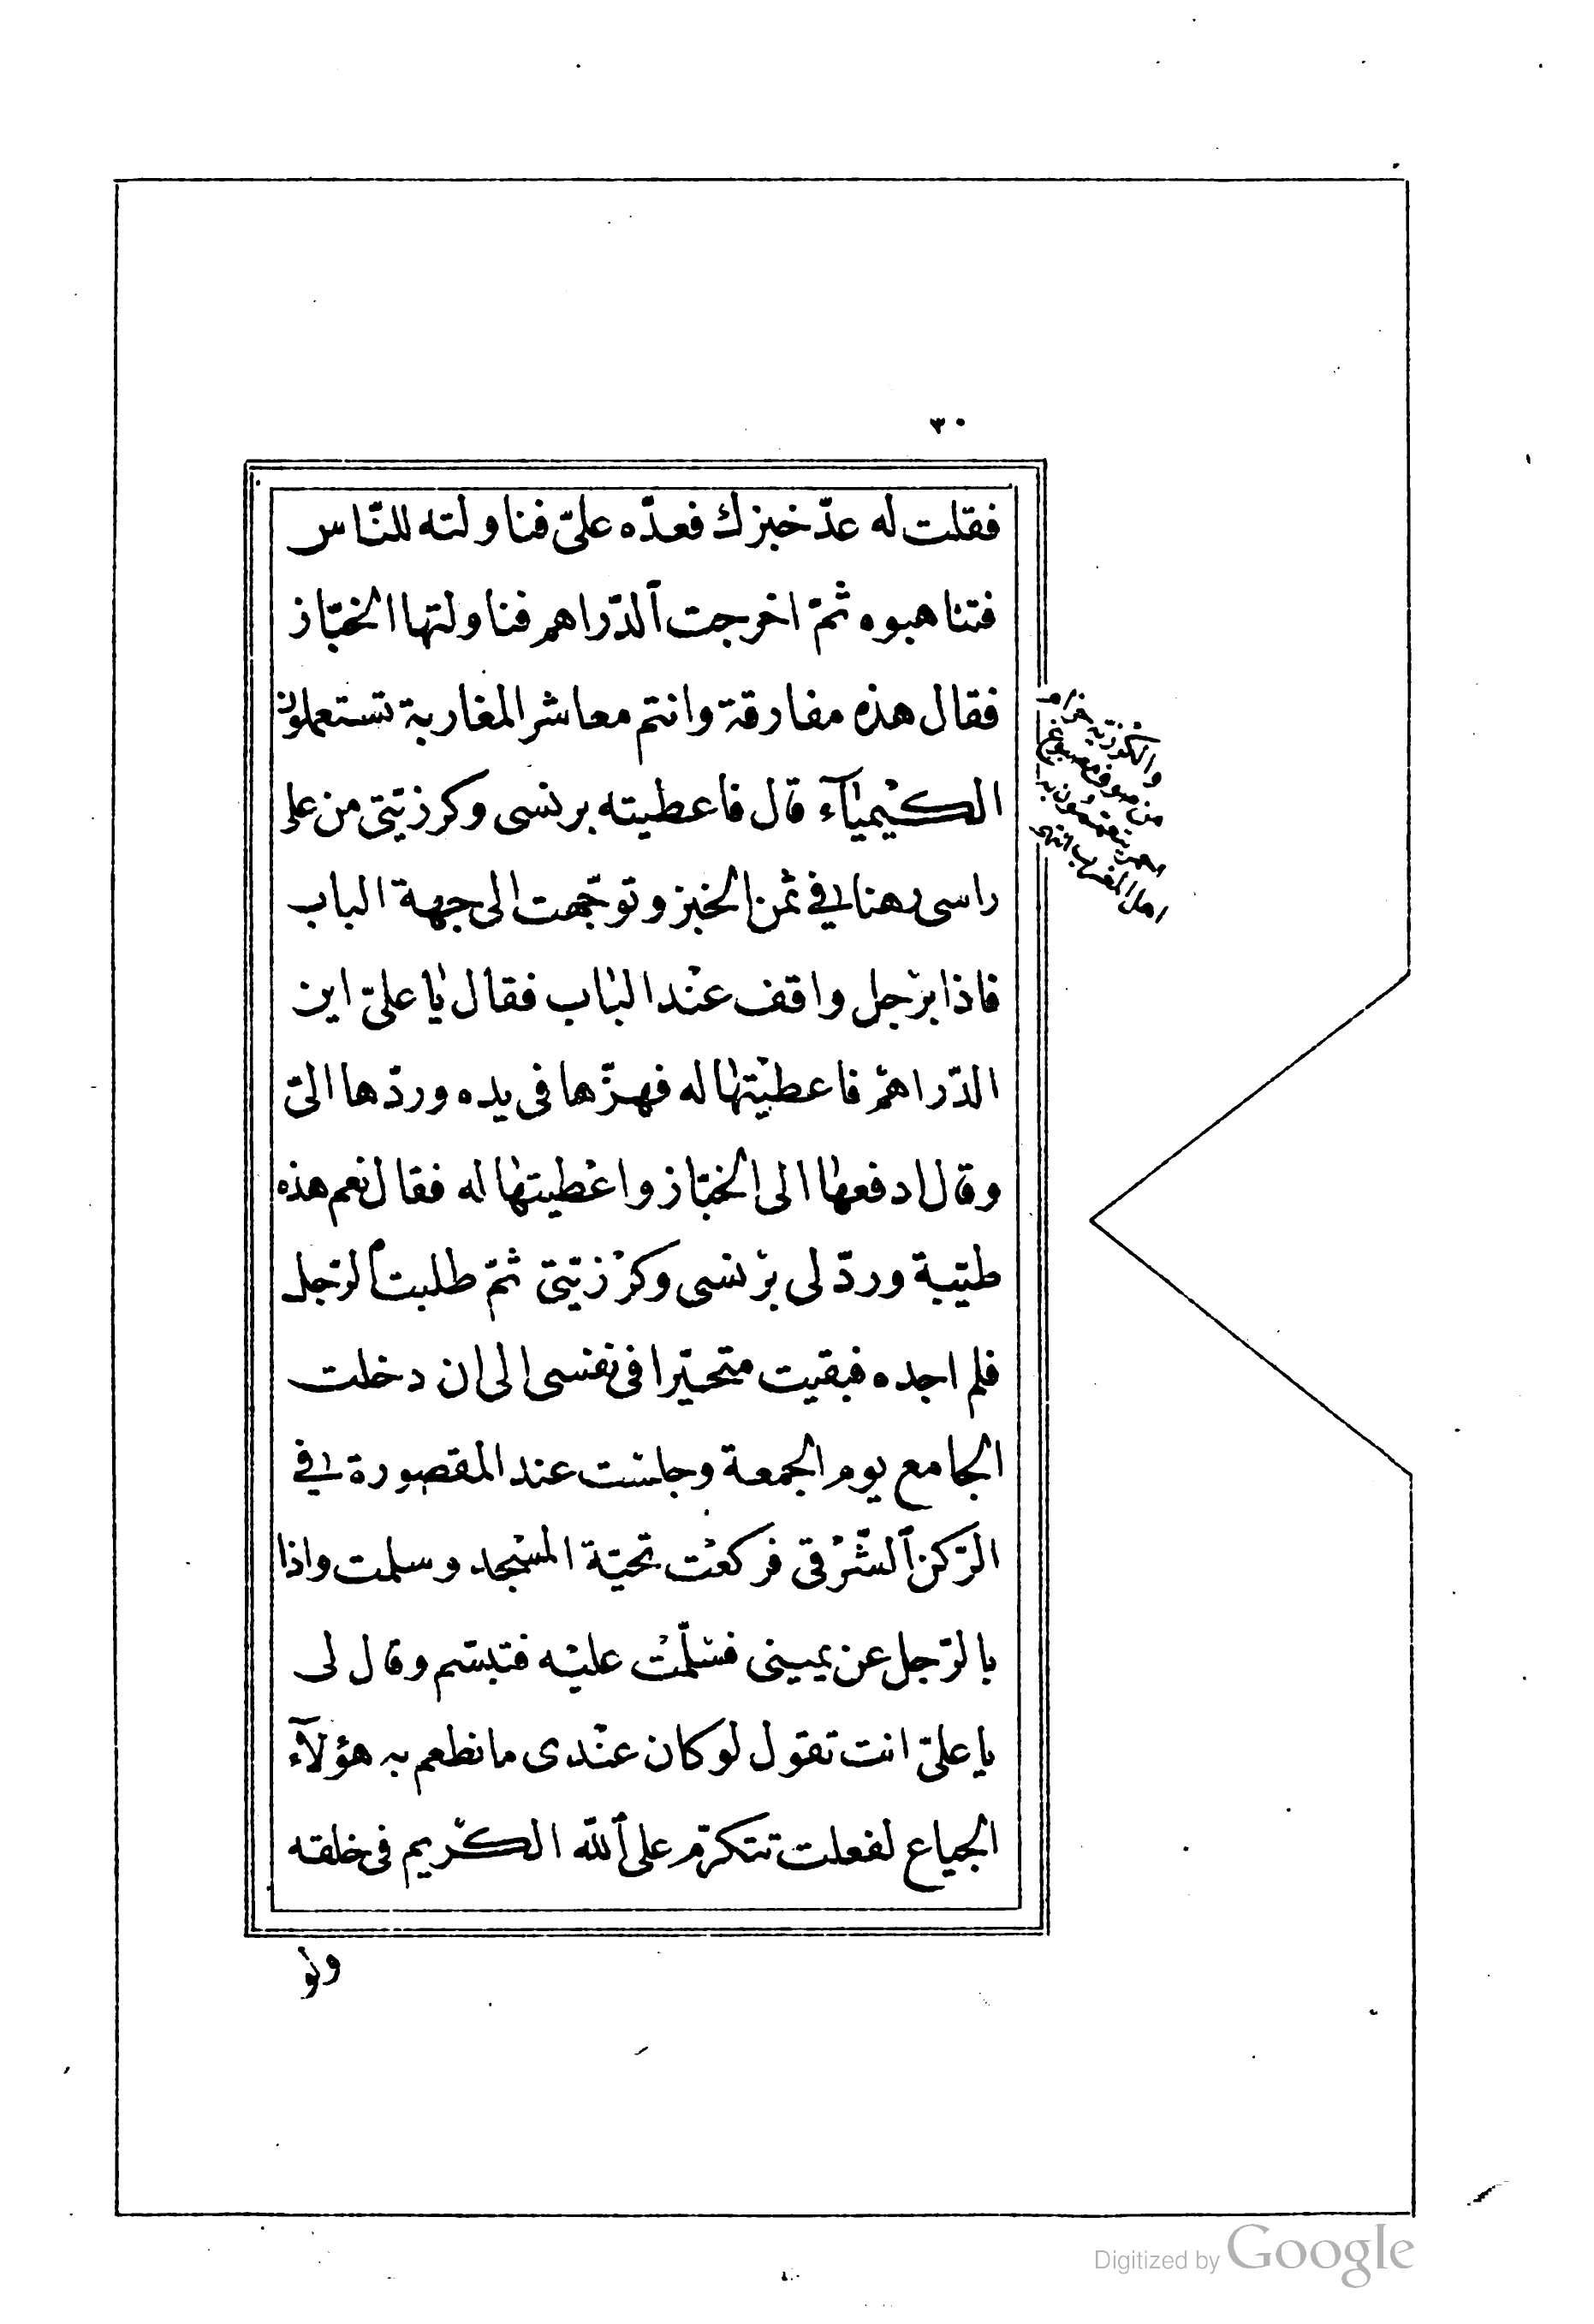 ٣٠
فقلت له عدّ خبزك فعدّه علىّ فناولته للنّاس
فتناهبوه ثمّ اخرجت ٱلدّراهم فناولتها الخبّاز
فقال هذه مفارقة وانتم معاشر المغاربة تستعملون
الكيْمياۤء قال فاعطيته برنسى وكرزيّتى من على
راسى رهنا فى ثمن الخبز وتوجّهت الى جهة الباب
فاذا برَجل واقف عنْد الباب فقال يا علىّ اين
الدّراهمْ فاعطيْتها له فهزّها فى يده وردّها الىّ
وقال ادفعها الى الخبّاز واعْطيتها له فقال نعم هذه
طيّبة وردّ لى برْنسى وكرْزيّتى ثمّ طلبت ٱلرّجل
فلم اجده فبقيت متحيّرا فى نفسى الى ان دخلت
الجامع يوم الجمعة وجلسْت عند المقصورة فى
الرّكن ٱلشّرْقى فركعْت تحيّة المسْجد وسلمت واذا
بالرّجل عن يمينى فسلّمْت عليْه فتبسّم وقال لى
يا علىّ انت تقول لو كان عنْدى ما نطعم به هؤلاۤء
الجياع لفعلت تتكرّم على ٱللّه الكريم فى خلقه
والكرزيّة حزام
من صوف مصبوغ
احمر يتعمّمون به
اهل المغرب انتهى
ولو
Digitized by Google